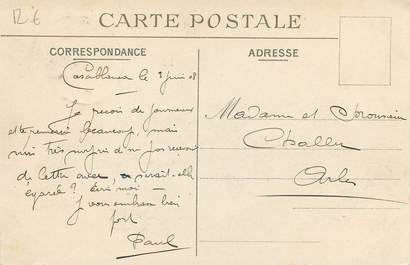 12 €
CARTE POSTALE
CORRESPONDANCE
ADRESSE
Casablanca le 3 juin 08
Je reçois de journeux
et te remercie beaucoup, mais
suis très surpris de pas recevoir
de lettre avec, serait-elle
égarée? Écris moi —
Je vous embrasse bien
fort
Paul
Madame et
Challer
Arles